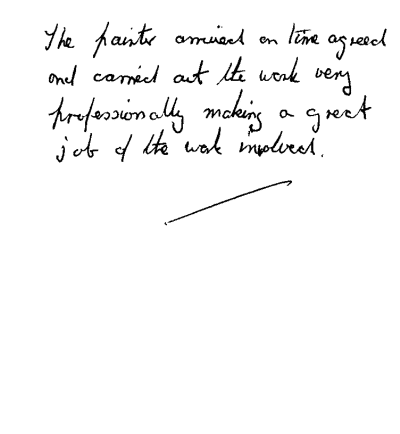 The painter arrived on time agreed
and carried out the work very
professionally making a great
job of the work involved.